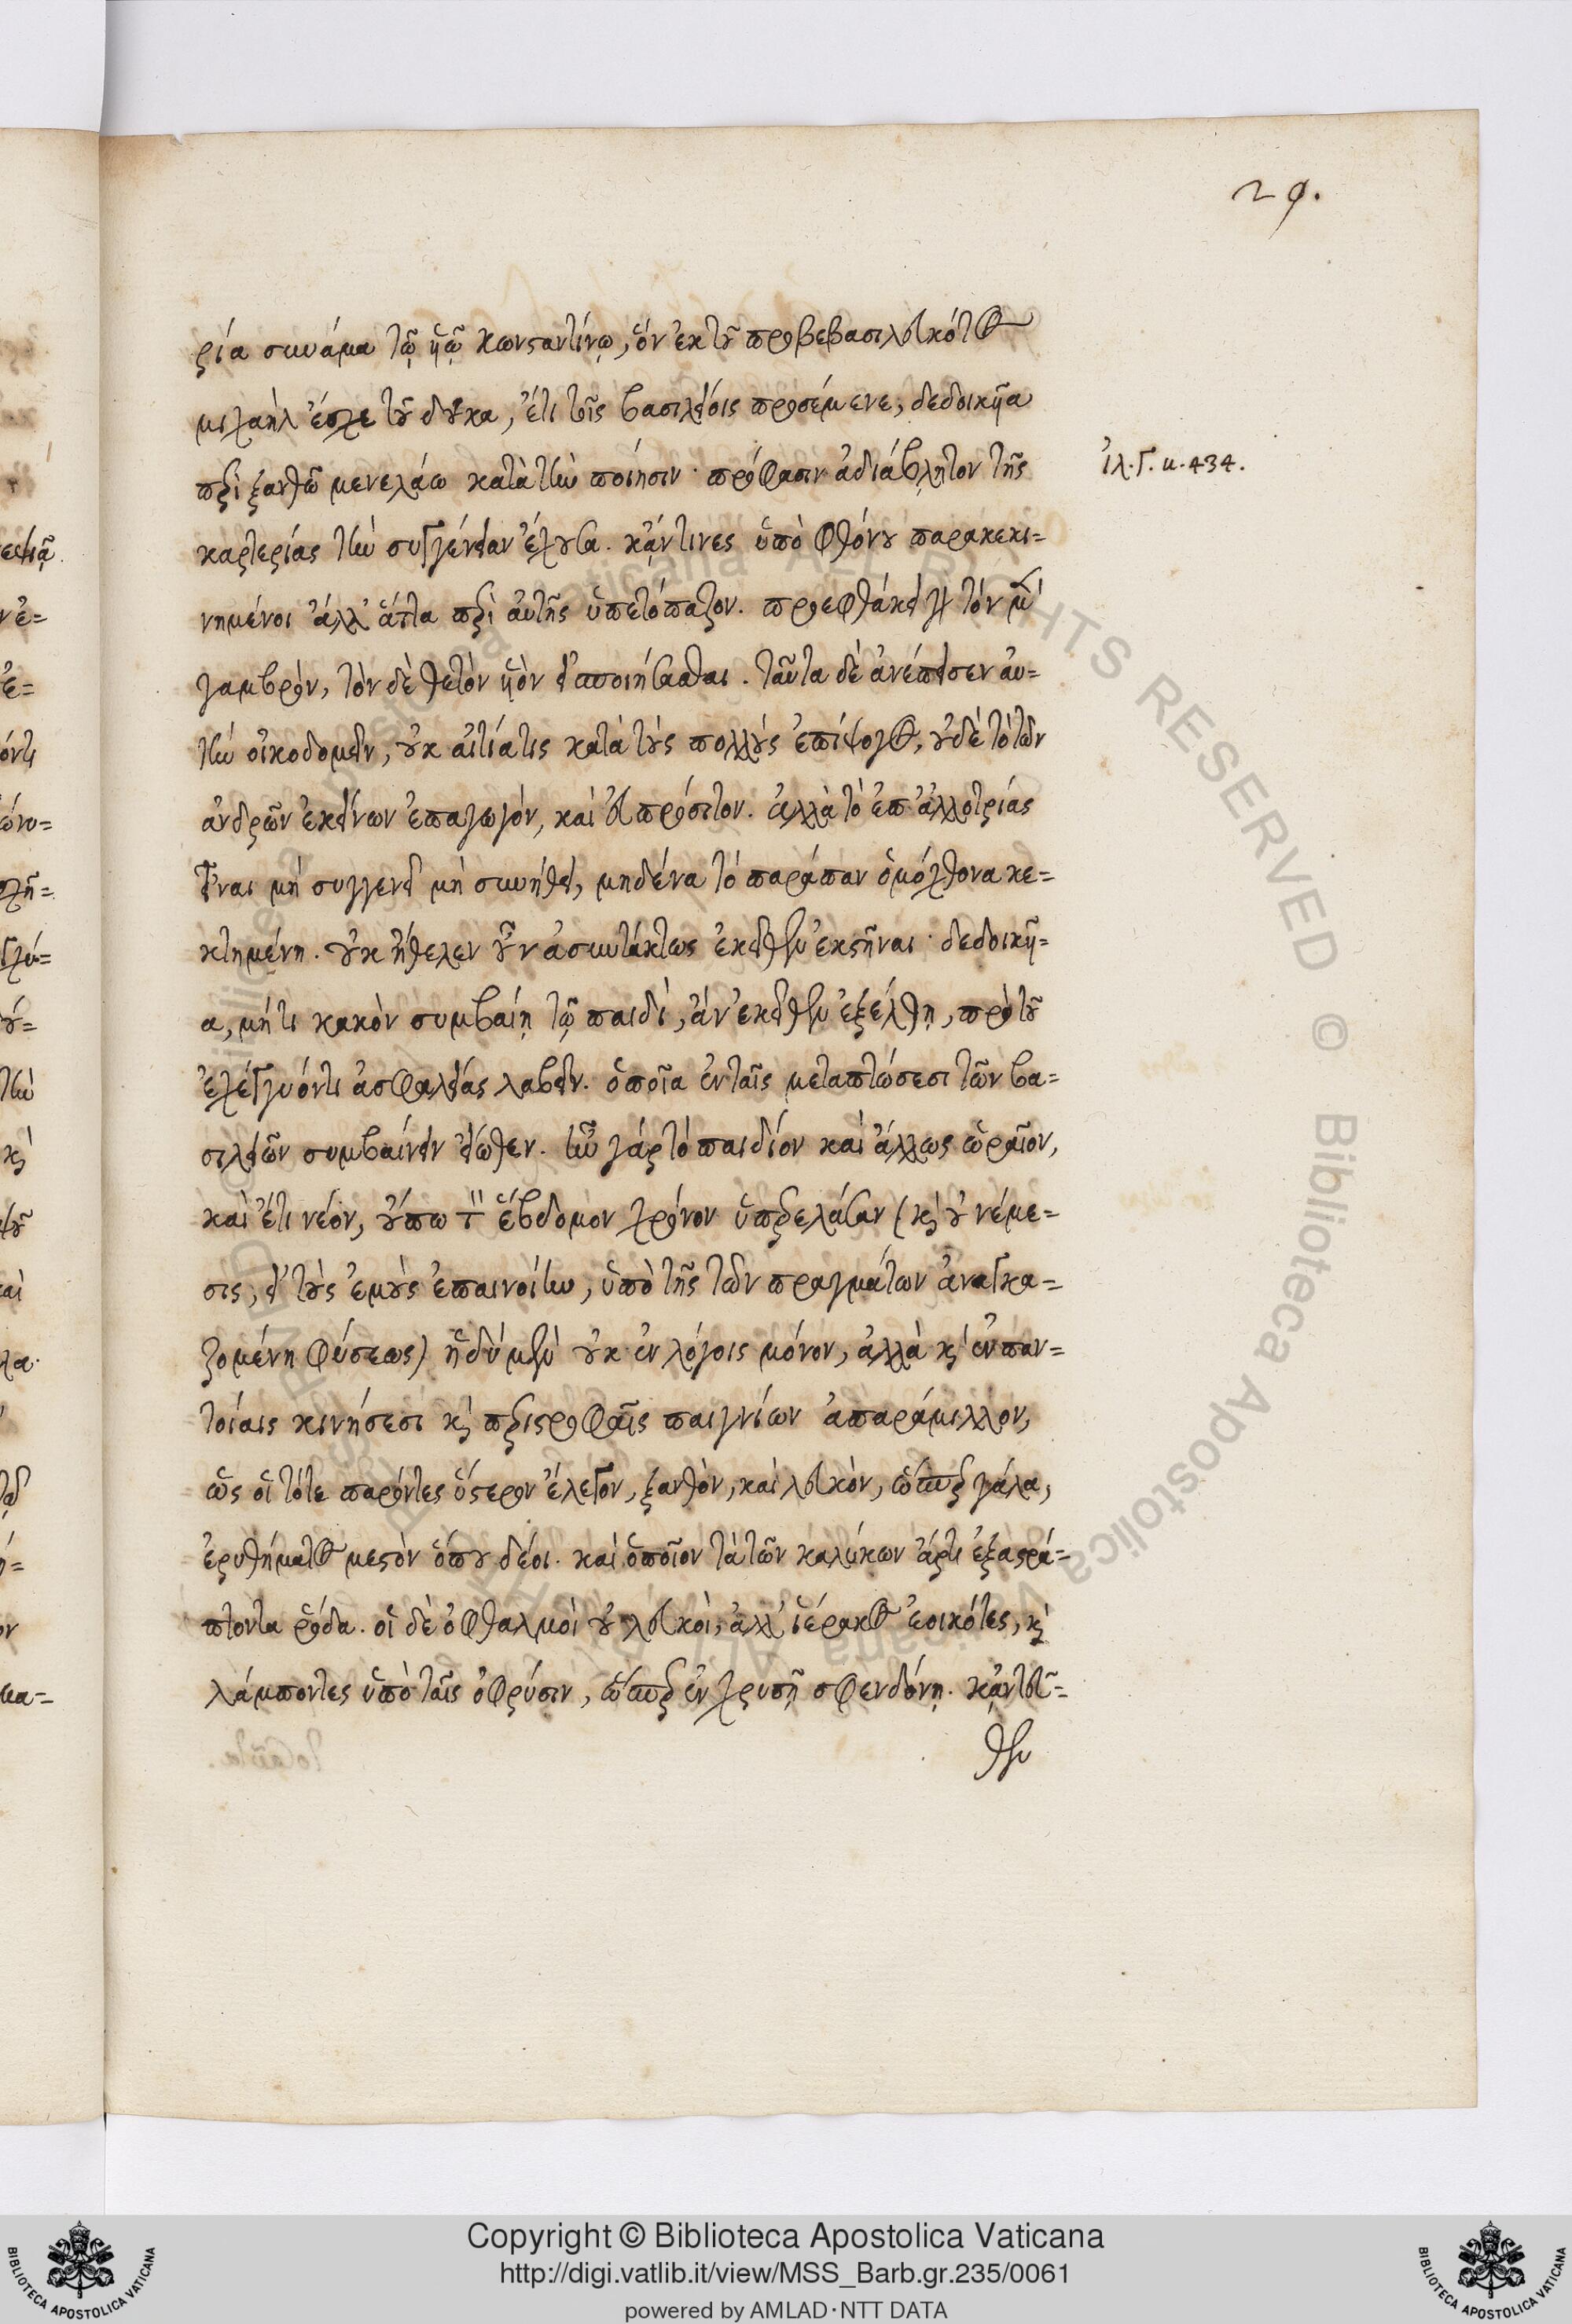 29.
ρία συνάμα τῷ ὑῷ κωνσταντίνῳ, ὃν ἐκ τοῦ προβεβασιλευκότος
μιχαὴλ ἔσχε τοῦ δούκα, ἔτι τοῖς βασιλείοις προσέμενε, δεδοικυῖα
περὶ ξανθῷ μενελάω κατὰ τὴν ποίησιν· πρόφασιν ἀδιάβλητον τῆς
ἰλ. Γ. κ. 434.
καρτερίας τὴν συγγένειαν ἔχουσα. κἄν τινες ὑπὸ φθόνου παρακεκι=
νημένοι ἀλλ' ἅττα περὶ αὐτῆς ὑπετόπαζον. προεφθάκει γὰρ τὸν μὲν
γαμβρὸν, τὸν δὲ θετὸν ὑὸν εἰσποιήσασθαι. ταῦτα δὲ ἀνέπεισεν αὐ=
τὴν οἰκοδομεῖν, οὐκ αἰτία τις κατὰ τοὺς πολλοὺς ἐπίψογος, οὐδὲ τὸ τῶν
ἀνδρῶν ἐκείνων ἐπαγωγόν, καὶ εὐπρόσιτον. ἀλλὰ τὸ ἐπ' ἀλλοτρίας
εἶναι μὴ συγγενεῖ μὴ συνήθει, μηδένα τὸ παράπαν ὁμόχθονα κε=
κτημένη. οὐκ ἤθελεν οὖν ἀσυντάκτως ἐκεῖθεν ἐκστῆναι· δεδοικυῖ=
α, μήτι κακὸν συμβαίη τῷ παιδί, ἂν ἐκεῖθεν ἐξέλθῃ, πρὸ τοῦ
ἐχέγγυόν τι ἀσφαλείας λαβεῖν. ὁποῖα ἐν ταῖς μεταπτώσεσι τῶν βα=
σιλειῶν συμβαίνειν εἴωθεν. ἦν γάρ τὸ παιδίον καὶ ἄλλως ὡραῖον,
καὶ ἔτι νέον, οὔπω τὸν ἕβδομον χρόνον ὑπερελάσαν (καὶ οὐ νέμε=
σις, εἰ τοὺς ἐμοὺς ἐπαινοίην, ὑπὸ τῆς τῶν πραγμάτων ἀναγκα=
ζομένη φύσεως) ἡδὺ μὲν οὐκ ἐν λόγοις μόνον, ἀλλὰ καὶ ἐν παν=
τοίαις κινήσεσι καὶ περιστροφαῖς παιγνίων ἀπαράμιλλον,
ὡς οἱ τότε παρόντες ὕστερον ἔλεγον, ξανθὸν, καὶ λευκὸν, ὥσπερ γάλα,
ἐρυθήματος μεστὸν ὅπου δέοι. καὶ ὁποῖον τὰ τῶν καλύκων ἄρτι ἐξαστρά=
πτοντα ῥόδα. οἱ δὲ ὀφθαλμοὶ οὐ λευκοὶ, ἀλλ' ἱέρακος ἐοικότες, καὶ
λάμποντες ὑπὸ ταῖς ὀφρύσιν, ὥσπερ ἐν χρυσῇ σφενδόνῃ. κἀντεῦ=
θεν
Copyright © Biblioteca Apostolica Vaticana
http://digi.vatlib.it/view/MSS_Barb.gr.235/0061
powered by AMLAD·NTT DATA